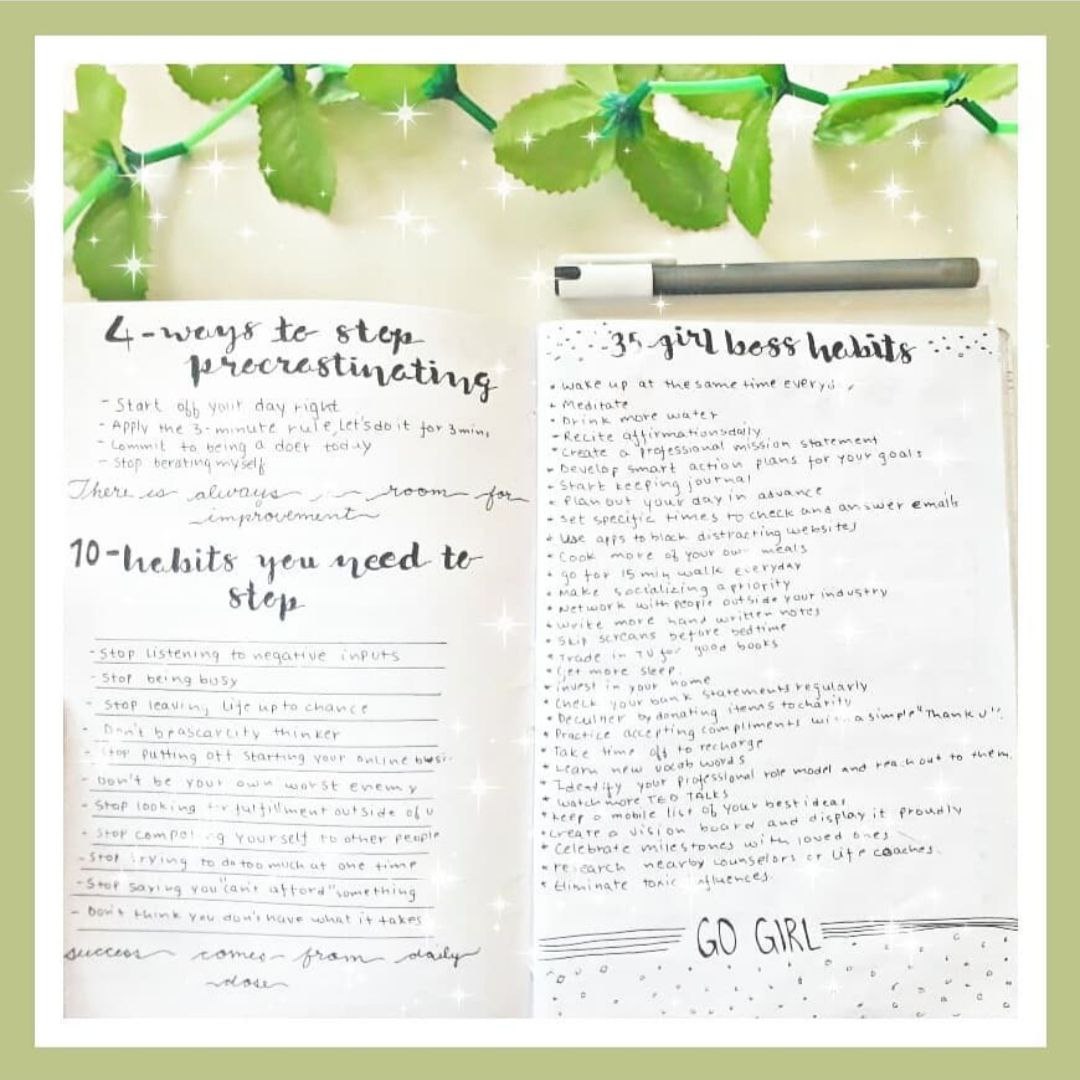 4-ways to stop
procrastinating
- Start off your day right
- Apply the 3-minute rule, Let's do it for 3 min,
- Commit to being a doer today
- Stop berating myself
There is always room for
improvement
10-habits you need to
stop
- Stop listening to negative inputs
- Stop being busy
- Stop leaving life up to chance
- Don't be a scarcity thinker
- Stop putting off starting your online
- Don't be your own worst enemy
- Stop looking for fulfillment outside of u
- Stop yourself to other people
- Stop trying to do too much at one time
- Stop saying you "can't afford" something
- Don't think you don't have what it takes
success comes from daily
dose
35-girl boss habits
• wake up at the same time
• Meditate
• Drink more water
- Recite affirmations daily
• Create a professional mission statement
• Develop smart action plans for your goals
• Start keeping journal
• Plan out your day in advance
• set specific times to check and answer emails
• Use apps to block distracting websites
• Cook more of your own meals
• go for 15 min walk everyday
• Make socializing a priority
• Network with people outside your industry
• write more hand written notes
• Skip screans before bedtime
• Trade in TV for good books
• Get more sleep.
• invest in your home
• Check your bank statements regularly
• by donating items to charity
• Practice accepting compliments a simple "Thank U".
• Take time off to recharge
• Learn new vocab words
• Identify your professional role model and reach out to them.
• watch more TED TALKS
• keep a mobile list of your best ideas
• create a vision board and display it proudly
• Celebrate milestones with loved ones
• research nearby counselors or life coaches.
• Eliminate toxic influences.
GO GIRL